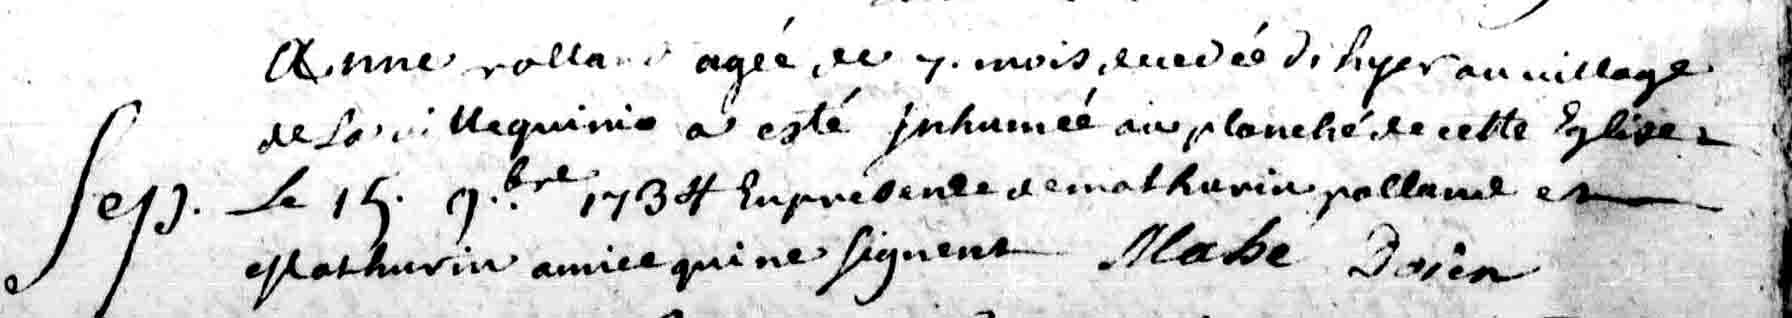 Anne rolland agéé de 7. mois decedéé d'hyer au village
de La villequinio a esté jnhuméé au planché de cette Eglise
Sep. Le 15. 9.bre 1734 En presence de mathurin rolland et
Mathurin amice qui ne signent Mahé Doien